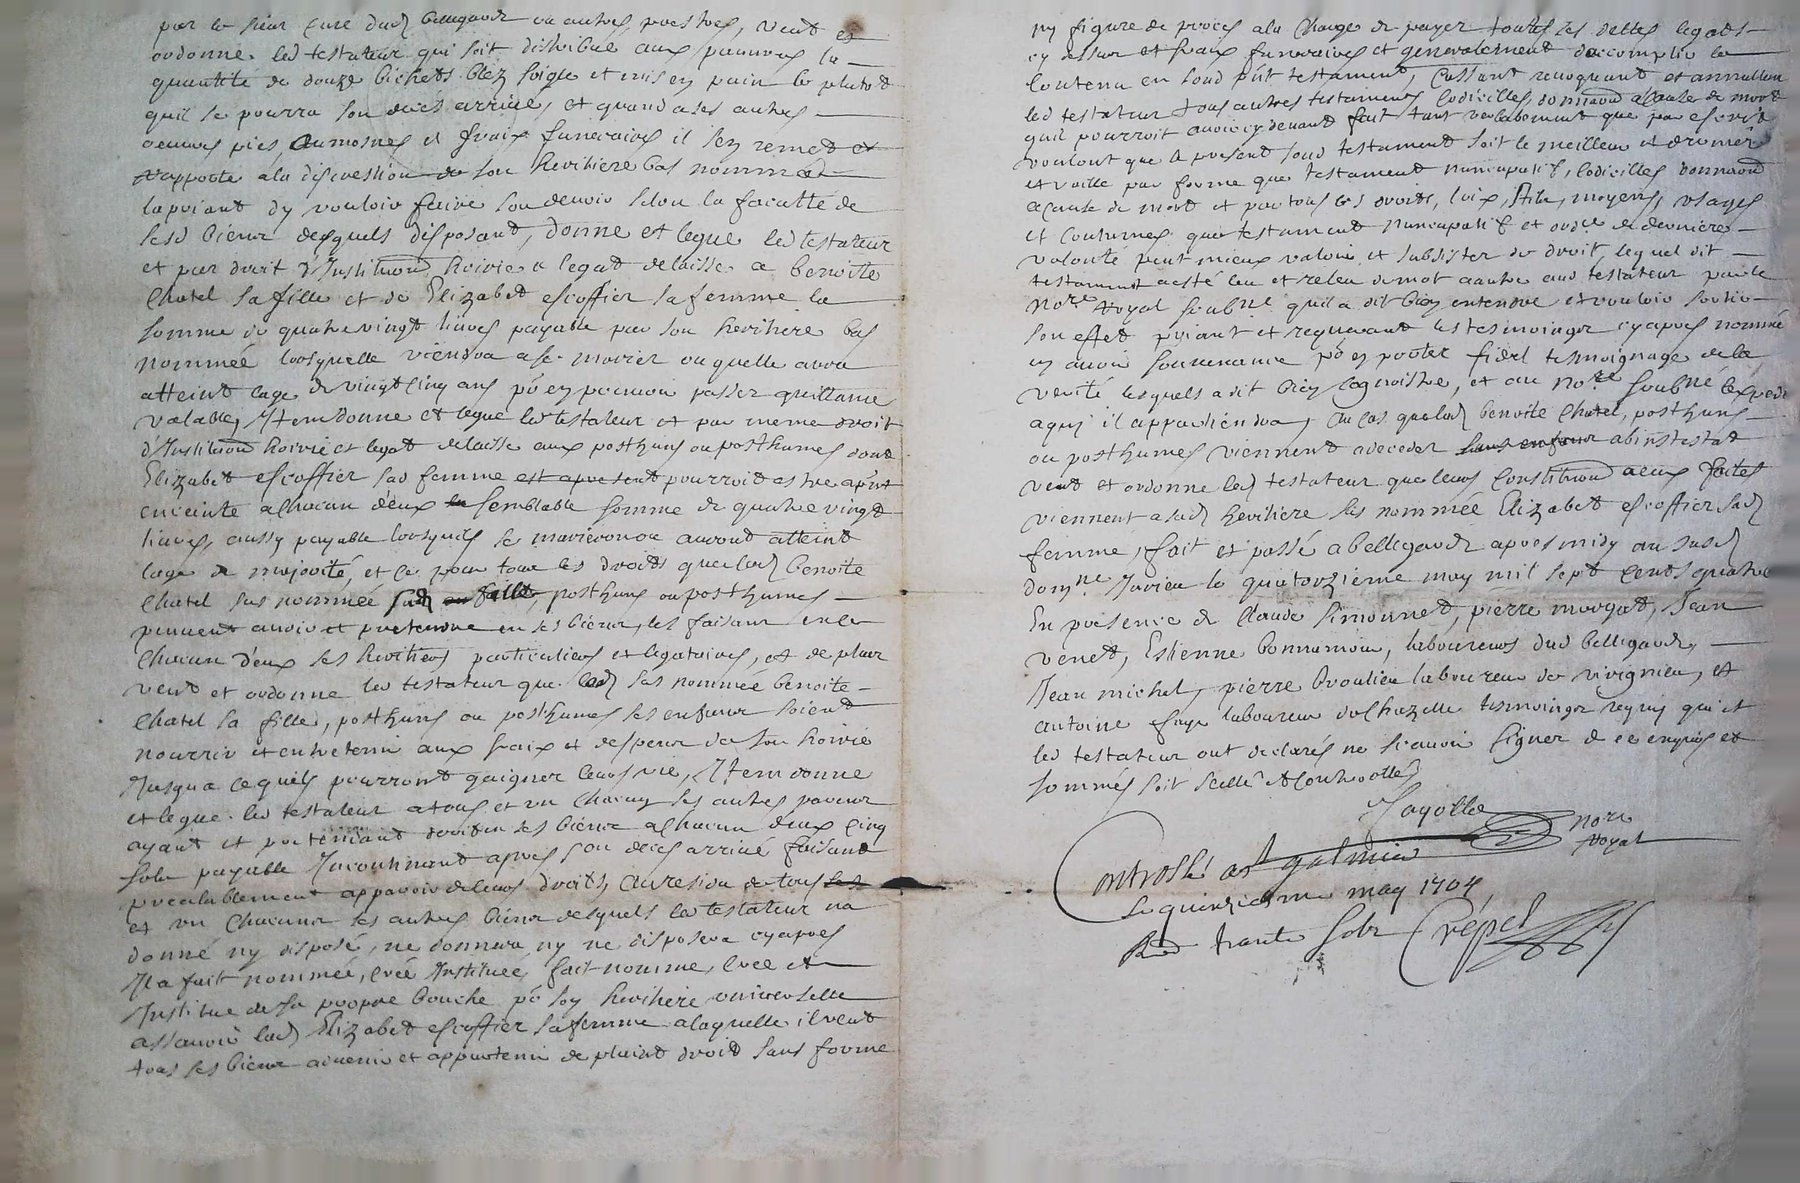 par le sieur curé dud Bellegarde ou autres prestres, veut et
ordonne led testateur qui soit distribué aux pauvres la
quantité de douze bichets bled soigle et mis en pain le plutost
quil se pourra son deces arrivé, et quand a ses autres
oeuvres pies aumosnes et fraix funeraires il sen remet et
rapporte a la discrestion de son heritiere bas nommée
la priant dy vouloir faire son devoir selon la faculté de
sesd biens desquels disposant, donne et legue led testateur
et par droit d'Institution hoirie et legat delaisse a benoite
Chatel sa fille et de Elizabet escoffier sa femme la
somme de quatre vingt livres payable par son heritiere bas
nommée lorsquelle viendra a se marier ou quelle aura
atteint lage de vingt cinq ans po en pouvoir passer quittance
valable, Item donne et legue led testateur et par meme droit
d'Institution hoirie et legat delaisse aux posthums ou posthumes dont
Elizabet escoffier sad femme est a present pourroit estre apnt
enceinte a chacun deux la semblable somme de quatre vingt
livres, aussy payable lorsquils se marieront ou auront atteint
lage de majorité, et ce pour tous les droits que lad benoite
Chatel sus nommée sad fille, posthums ou posthumes
peuvent avoir et pretendre en ses biens, les faisant en ce
chacun d'eux ses heritiers particuliers et legataires, et de plus
veut et ordonne led testateur que lad sus nommée benoite
Chatel sa fille, posthums ou posthumes ses enfans soient
nourris et entretenu aux fraix et despens de son hoirie
Jusqua ce quils pourront gaigner leurs vie, Item donne
et legue led testateur a tous et un chacun ses autres parens
ayant et pretendant droit en ses biens a chacun deux cinq
sols payable Incontinant apres son deces arrivé faisant
prealablement apparoir de leurs droits, Au residu de tous ses
et un chacuns ses autres biens desquels led testateur na
donné ny disposé, ne donnera ny ne disposera cy apres
Il a fait nommée, creé Instituée, fait nomme, cree et
Institue de sa propre bouche po son heritiere universelle
assavoir lad Elizabet escoffier sa femme a laquelle il veut
tous ses biens advenir et appartenir de plaint droit sans forme
ny figure de proces a la charge de payer touttes ses dettes legats
cy dessus et fraix funeraires et generalement daccomplir le
contenu en soud pnt testament, Cassant revoquant et annullant
led testateur tous autres testaments codicilles, donnaons a cause de mort
quil pourroit avoir cy devant fait tant verbalement que par escrit
voulant que le present soud testament soit le meilleur et dernier
et vaille par forme que testament nuncupatif, codicilles donnaon
a cause de mort et par tous les droits, loix, stile, moyens, usages
et coutumes que testament nuncupatif et ordce de derniere
volonté peut mieux valoir et subsister de droit, lequel dit
testament a esté leu et releu de mot a autre aud testateur par le
nore royal soubne quil a dit bien entendre et vouloir sortir
son effet priant et requerant les tesmoings cy apres nommé
en avoir souvenance po en porter fidel tesmoignage de la
verité lesquels a dit bien cognoistre, et au nore soubné lexpedier
a qui il appartiendra, Au cas que lad benoite Chatel, posthums
ou posthumes viennent a deceder sans enfans abinstestat
veut et ordonne led testateur que leurs constitution a eux faites
viennent a sad heritiere sus nommée Elizabet escoffier sad
femme, fait et passé a bellegarde apres midy au susd
domne Jurieu le quatorzieme may mil sept cents quatre
En presence de Claude simonnet, pierre morgat, Jean
venet, Estienne bonnamour, laboureurs dud bellegarde,
Jean michel, pierre broulieu laboureur de vivignieu, et
antoine faye laboureur de Chazelle tesmoings requis qui et
led testateur ont declarés ne scavoir signer de ce enquis et
sommés soit scellé et controollé
Jayolle
nore
royal
Controslé a st galmier
le quinzieme may 1704
Red trante sols Crépet